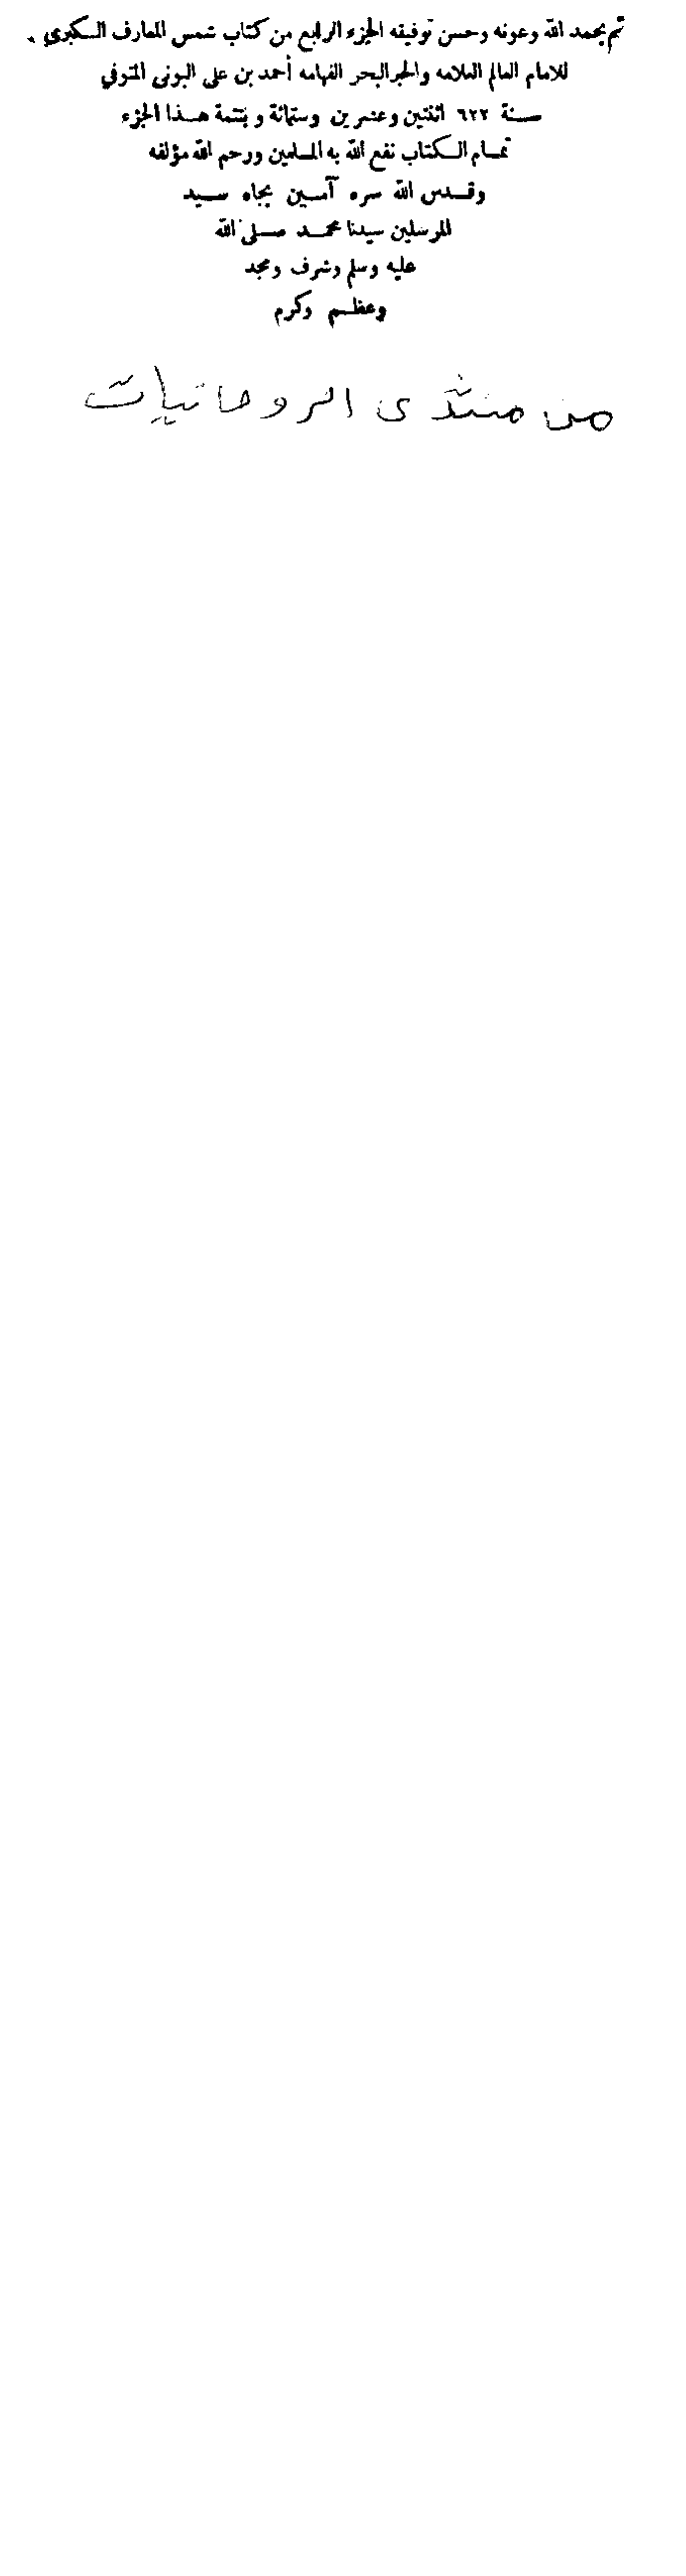 تم بحمد الله وعونه وحسن توفيقه الجزء الرابع من كتاب شمس المعارف الكبرى .
للامام العالم العلامه والحبر البحر الفهامه أحمد بن على البونى المتوفي
سنة ٦٢٢ اثنتين وعشرين وستمائة وبتتمة هذا الجزء
تمام الكتاب نفع الله به المسلمين ورحم الله مؤلفه
وقدس الله سره آمين بجاه سيد
المرسلين سيدنا محمد صلى الله
عليه وسلم وشرف ومجد
وعظم وكرم
من منتدى الروحانيات